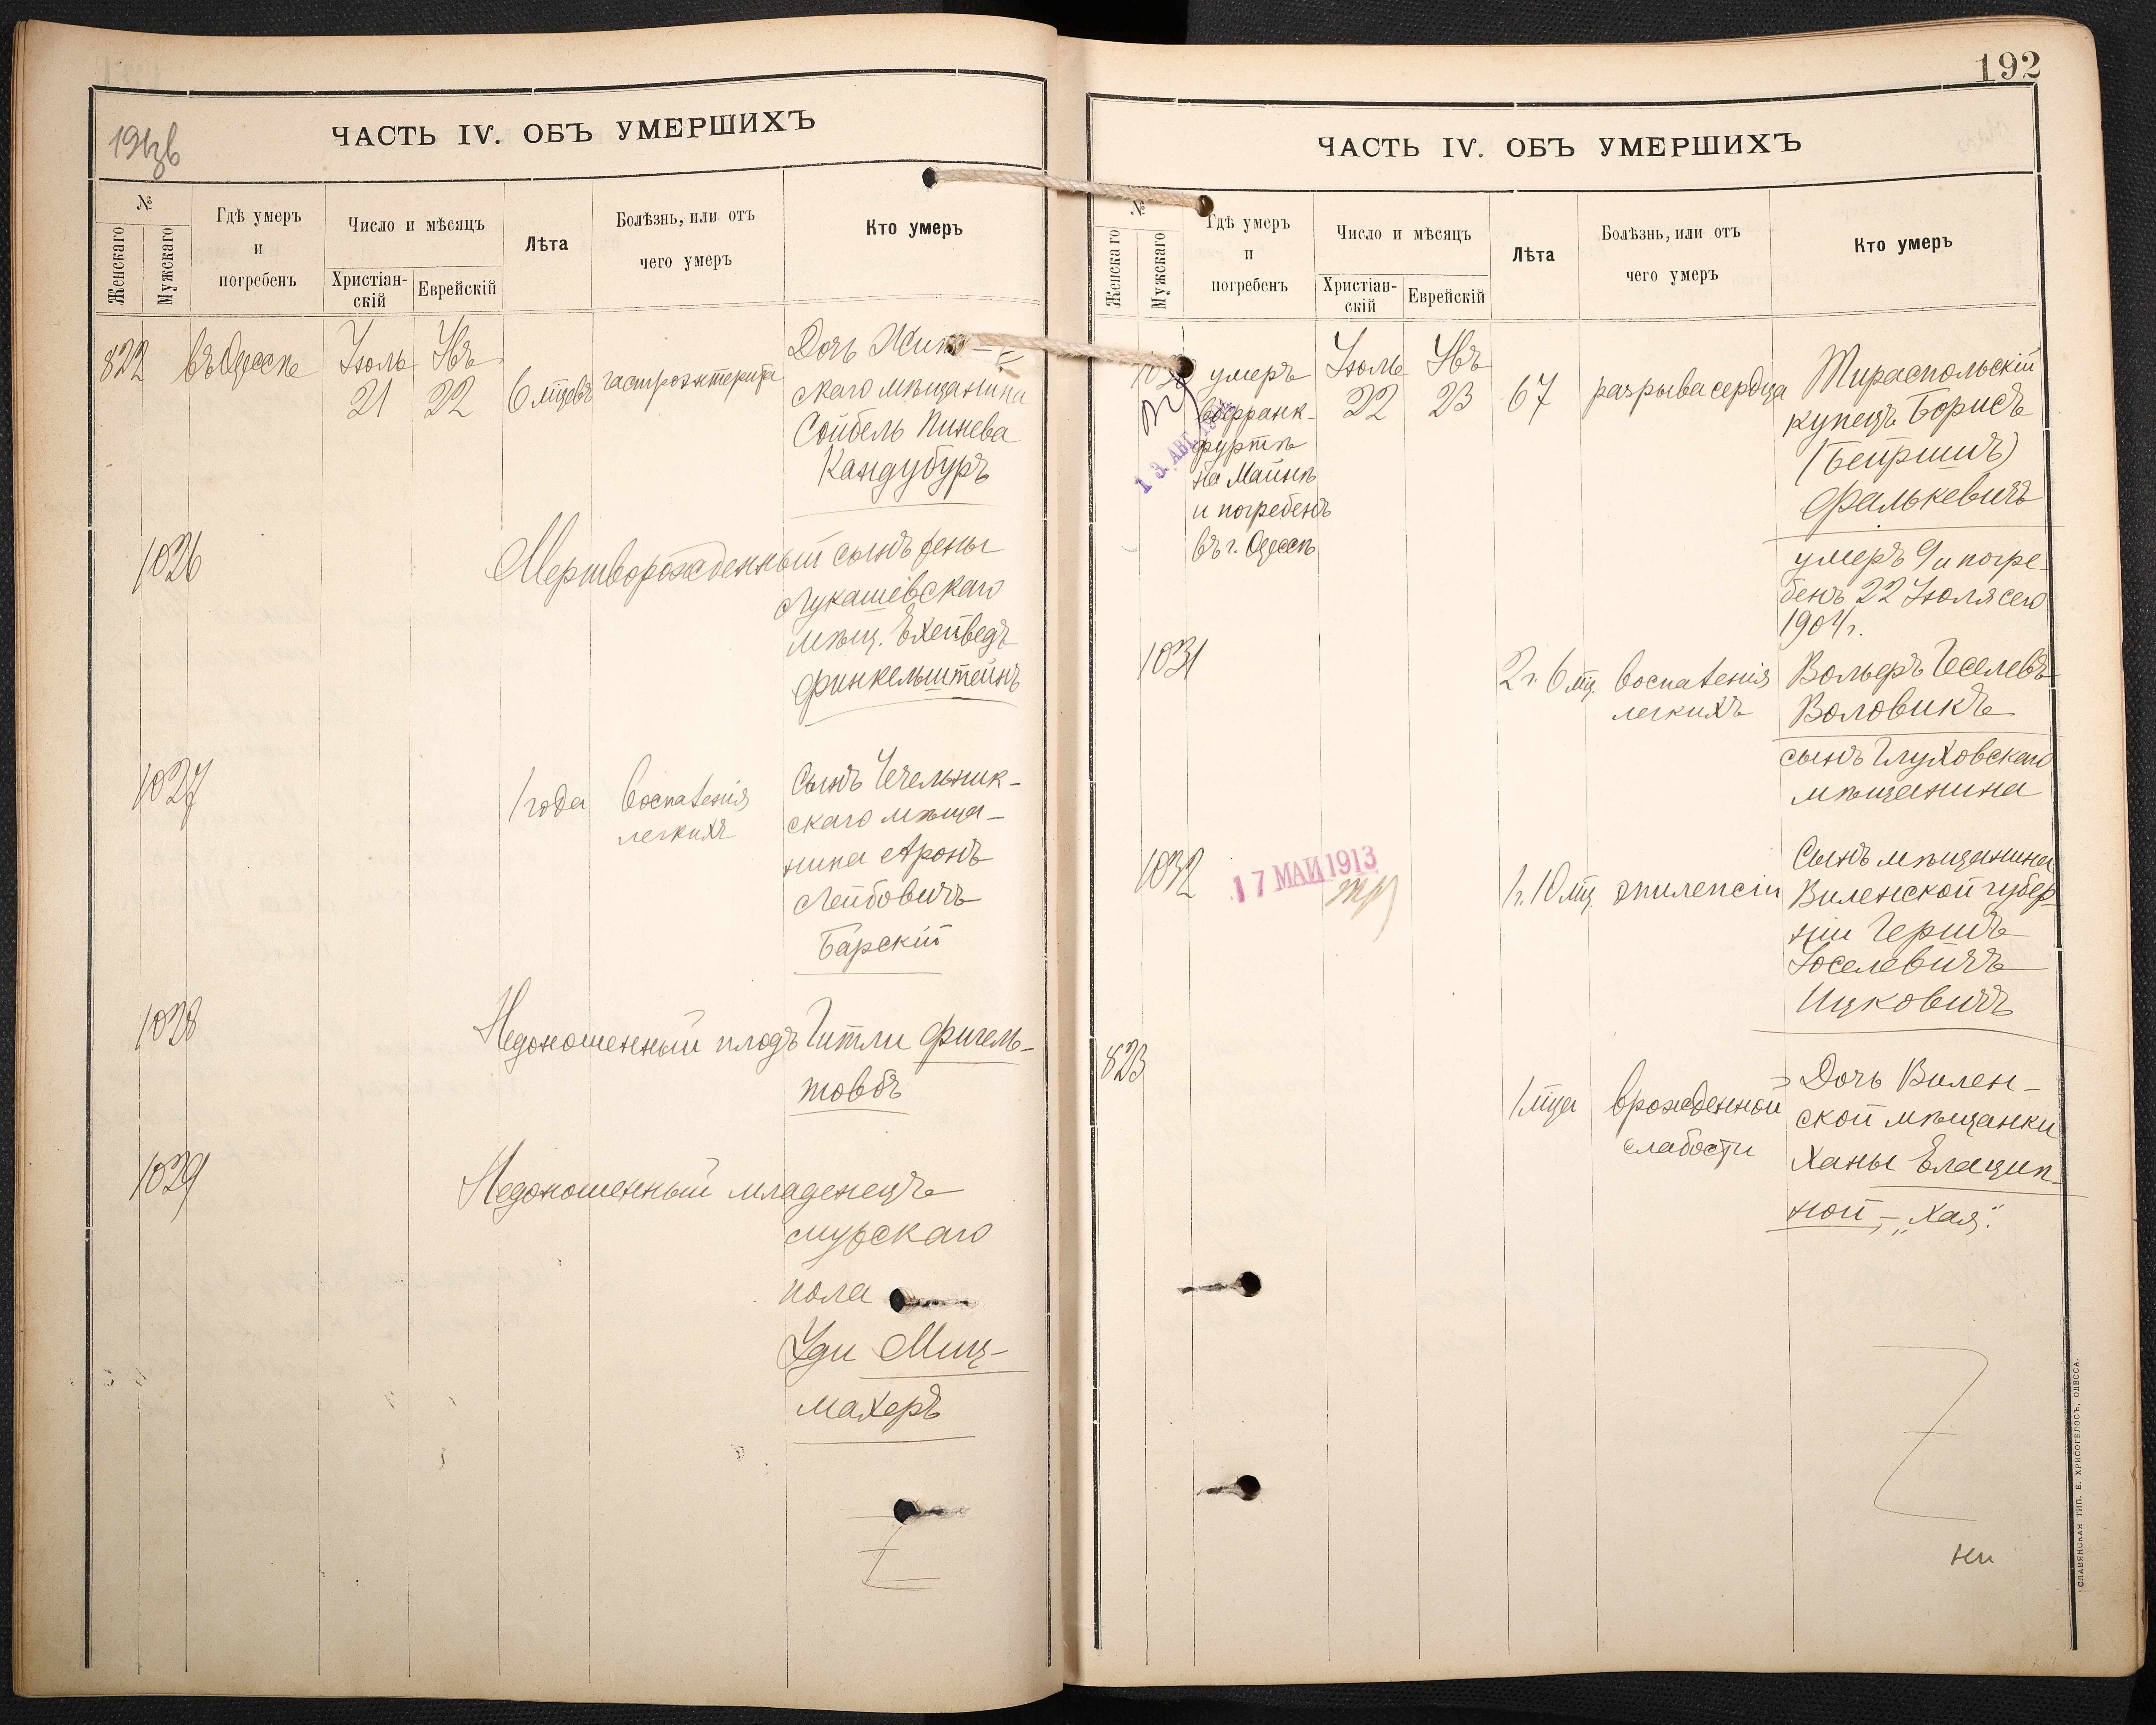 ЧАСТЬ IV. ОБЪ УМЕРШИХЪ
№
Женскаго
Мужскаго
Гдѣ умеръ
и
погребенъ
Число и мѣсяцъ
Христіан-
скій
Еврейскій
Лѣта
Болѣзнь, или отъ
чего умеръ
Кто умеръ
822
въ Одессѣ
Іюль
21
Авъ
22
6 мцевъ
гастроэнтерита
Дочь
скаго мѣщанина
Сойбель Пинева
Кандубуръ
1026
Мертворожденный сынъ
Лукашевскаго
мѣщ. Ехейведъ
Финкельштейнъ
1027
1 года
воспаленія
легкихъ
Сынъ Чечельник-
скаго мѣща-
нина Аронъ
Лейбовичъ
Барскій
1028
Недоношенный плодъ Гитли Фигель-
товбъ
1029
Недоношенный младенецъ
мужскаго
пола
Уди Миц-
махеръ
192
ЧАСТЬ IV. ОБЪ УМЕРШИХЪ
№
Женскаго
Мужскаго
Гдѣ умеръ
и
погребенъ
Число и мѣсяцъ
Христіан-
скій
Еврейскій
Лѣта
Болѣзнь, или отъ
чего умеръ
Кто умеръ
умеръ
во Франк-
фуртѣ
на Майнѣ
и погребенъ
въ г. Одессѣ
Іюль
22
Авъ
23
67
разрыва сердца
Тираспольскій
купецъ Борисъ
(Бейришъ)
Фалькевичъ
умеръ 9 и погре-
бенъ 22 Іюля сего
1904 г.
1031
2 г. 6 мц.
воспаленія
легкихъ
Вольфъ Геселевъ
Воловикъ
сынъ Глуховскаго
мѣщанина
1032
17 МАИ 1913
1 г. 10 мц.
эпилепсіи
Сынъ мѣщанина
Виленской губер-
ніи Гершъ
Іоселевичъ
Ицковичъ
823
1 мца
врожденной
слабости
Дочь Вилен-
ской мѣщанки
Ханы Елацип-
ной - „Хая“.
СЛАВЯНСКАЯ ТИП. Е. ХРИСОГЕЛОСЪ, ОДЕССА.